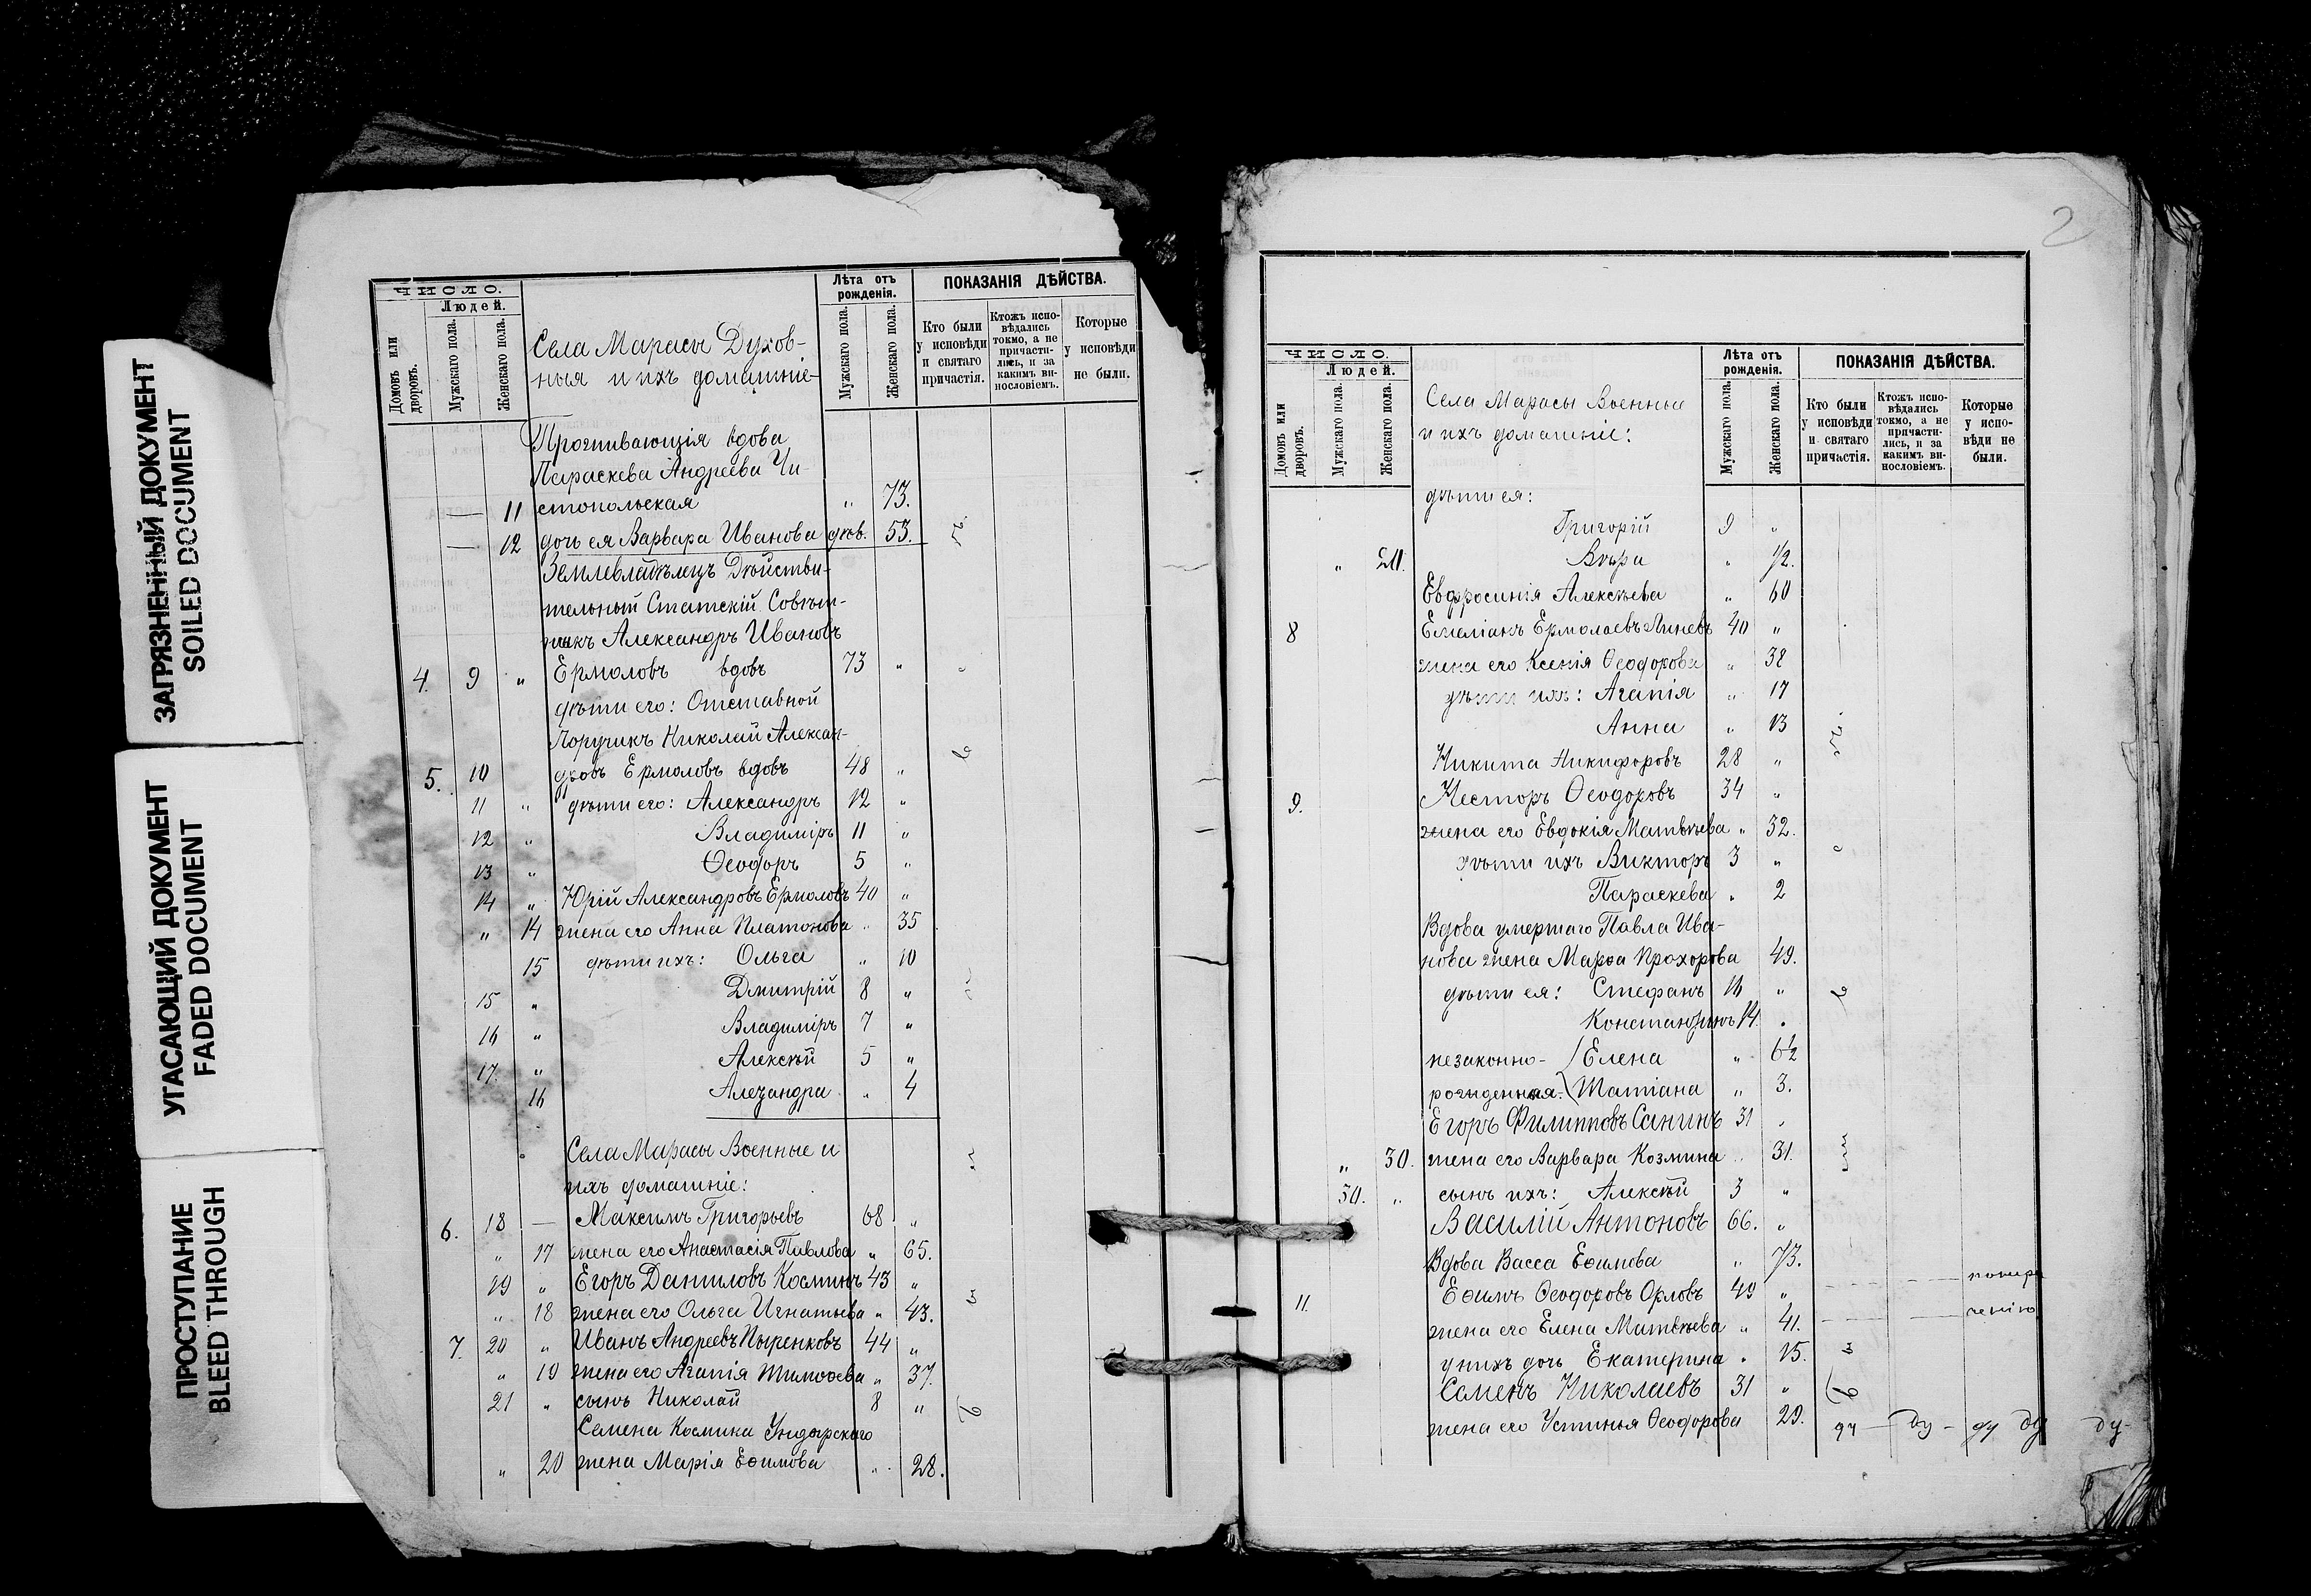 ЗАГРЯЗНЕННЫЙ ДОКУМЕНТ
SOILED DOCUMENT
УГАСАЮЩИЙ ДОКУМЕНТ
FADED DOCUMENT
ПРОСТУПАНИЕ
BLEED THROUGH
ЧИСЛО.
Людей.
Домовъ или дворовъ.
Мужскаго пола.
Женскаго пола.
Села Марасы Духов-
ныя и ихъ домашніе
Лѣта отъ рожденія.
Мужскаго пола.
Женскаго пола.
ПОКАЗАНІЯ ДѢЙСТВА.
Кто были у исповѣди и святаго причастія.
Ктожъ испо-вѣдались токмо, а не причасти-лись, и за какимъ ви-нословіемъ.
Которые у исповѣди не были.
Проживающія вдова
Параскева Андреева Чи-
— 11 стопольская " 73.
— 12 дочь ея Варвара Иванова дѣв. 53.
Землевладѣлецъ Дѣйстви-
тельный Статскій Совѣт-
никъ Александръ Ивановъ
4. 9 " Ермоловъ вдовъ 73 "
дѣти его: Отставной
Поручикъ Николай Алексан-
5. 10 дровъ Ермоловъ вдовъ 48 "
11 " дѣти его: Александръ 12 "
12 " Владиміръ 11 "
13 " Ѳеодоръ 5 "
14 " Юрій Александровъ Ермоловъ 40 "
" 14 жена его Анна Платонова " 35
15 дѣти ихъ: Ольга " 10
15 " Дмитрій 8 "
16 " Владиміръ 7 "
17. " Алексѣй 5 "
16 Алеѯандра " 4
Села Марасы Военные и
ихъ домашніе:
6. 18 — Максимъ Григорьевъ 68 "
" 17 жена его Анастасія Павлова " 65.
19 " Егоръ Даниловъ Косминъ 43 "
" 18 жена его Ольга Игнатьева " 43.
7. 20 " Иванъ Андреевъ Пыренковъ 44 "
" 19 жена его Агапія Тимоѳева " 37.
21 " сынъ Николай 8 "
Семена Космина Ундорскаго
" 20 жена Марія Еѳимова " 28.
2
ЧИСЛО.
Людей.
Домовъ или дворовъ.
Мужскаго пола.
Женскаго пола.
Села Марасы Военные
и ихъ домашніе:
Лѣта отъ рожденія.
Мужскаго пола.
Женскаго пола.
ПОКАЗАНІЯ ДѢЙСТВА.
Кто были у исповѣди и святаго причастія.
Ктожъ испо-вѣдались токмо, а не причасти-лись, и за какимъ ви-нословіемъ.
Которые у испо-вѣди не были.
дѣти ея:
Григорій 9 "
" Вѣра " 1/2.
Евфросинія Алексѣева " 60
8 Емеліанъ Ермолаевъ 40 "
жена его Ксенія Ѳеодорова " 38
дѣти ихъ: Агапія " 17
Анна " 13
Никита Никифоровъ 28 "
9. Несторъ Ѳеодоровъ 34 "
жена его Евдокія Матвѣева " 32.
дѣти ихъ Викторъ 3 "
Параскева " 2
Вдова умершаго Павла Ива-
нова жена Марѳа Прохорова 49.
дѣти ея: Стефанъ 16 "
Константинъ 14. "
незаконно- Елена " 6 1/2
рожденная. Татіана " 3.
Егоръ Филипповъ Санинъ 31 "
" 30. жена его Варвара Козмина " 31.
30. " сынъ ихъ: Алексѣй 3 "
Василій Антоновъ 66. "
Вдова Васса Еѳимова " 73.
11. Еѳимъ Ѳеодоровъ Орловъ 49 "
жена его Елена Матвѣева " 41.
у нихъ дочь Екатерина " 15.
Семенъ Николаевъ 31 "
жена его Устинья Ѳеодорова 29.